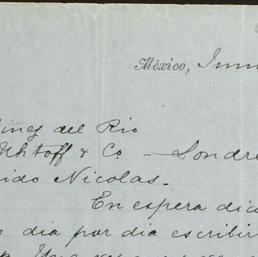 México,
del Rio
& Co. — Londre
ido Nicolas.
En espera dia
dia por dia escribir